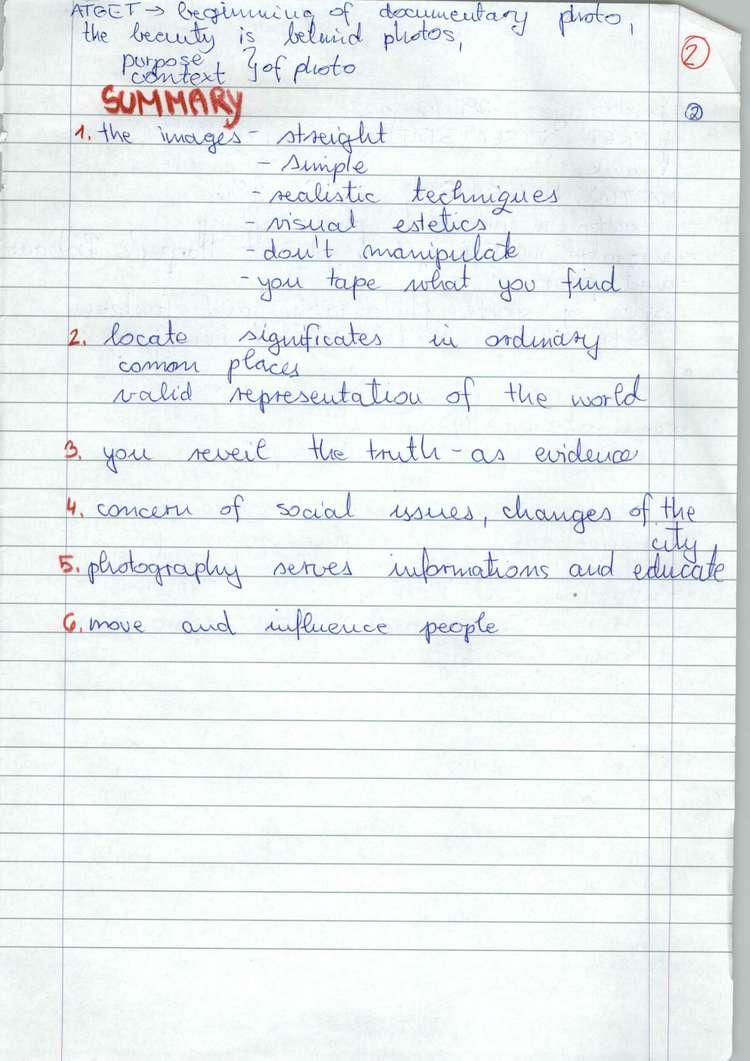 ATGET → beginning of documentary photo,
the beauty is behind photos,
purpose
context } of photo
2
SUMMARY
2
1. the images - streight
- simple
- realistic techniques
- visual estetics
- don't manipulate
- you tape what you find
2. locate significates in ordinary
common places
valid representation of the world
3. you reveil the truth - as evidence
4. concern of social issues, changes of the
city,
5. photography serves informations and educate
6. move and influence people